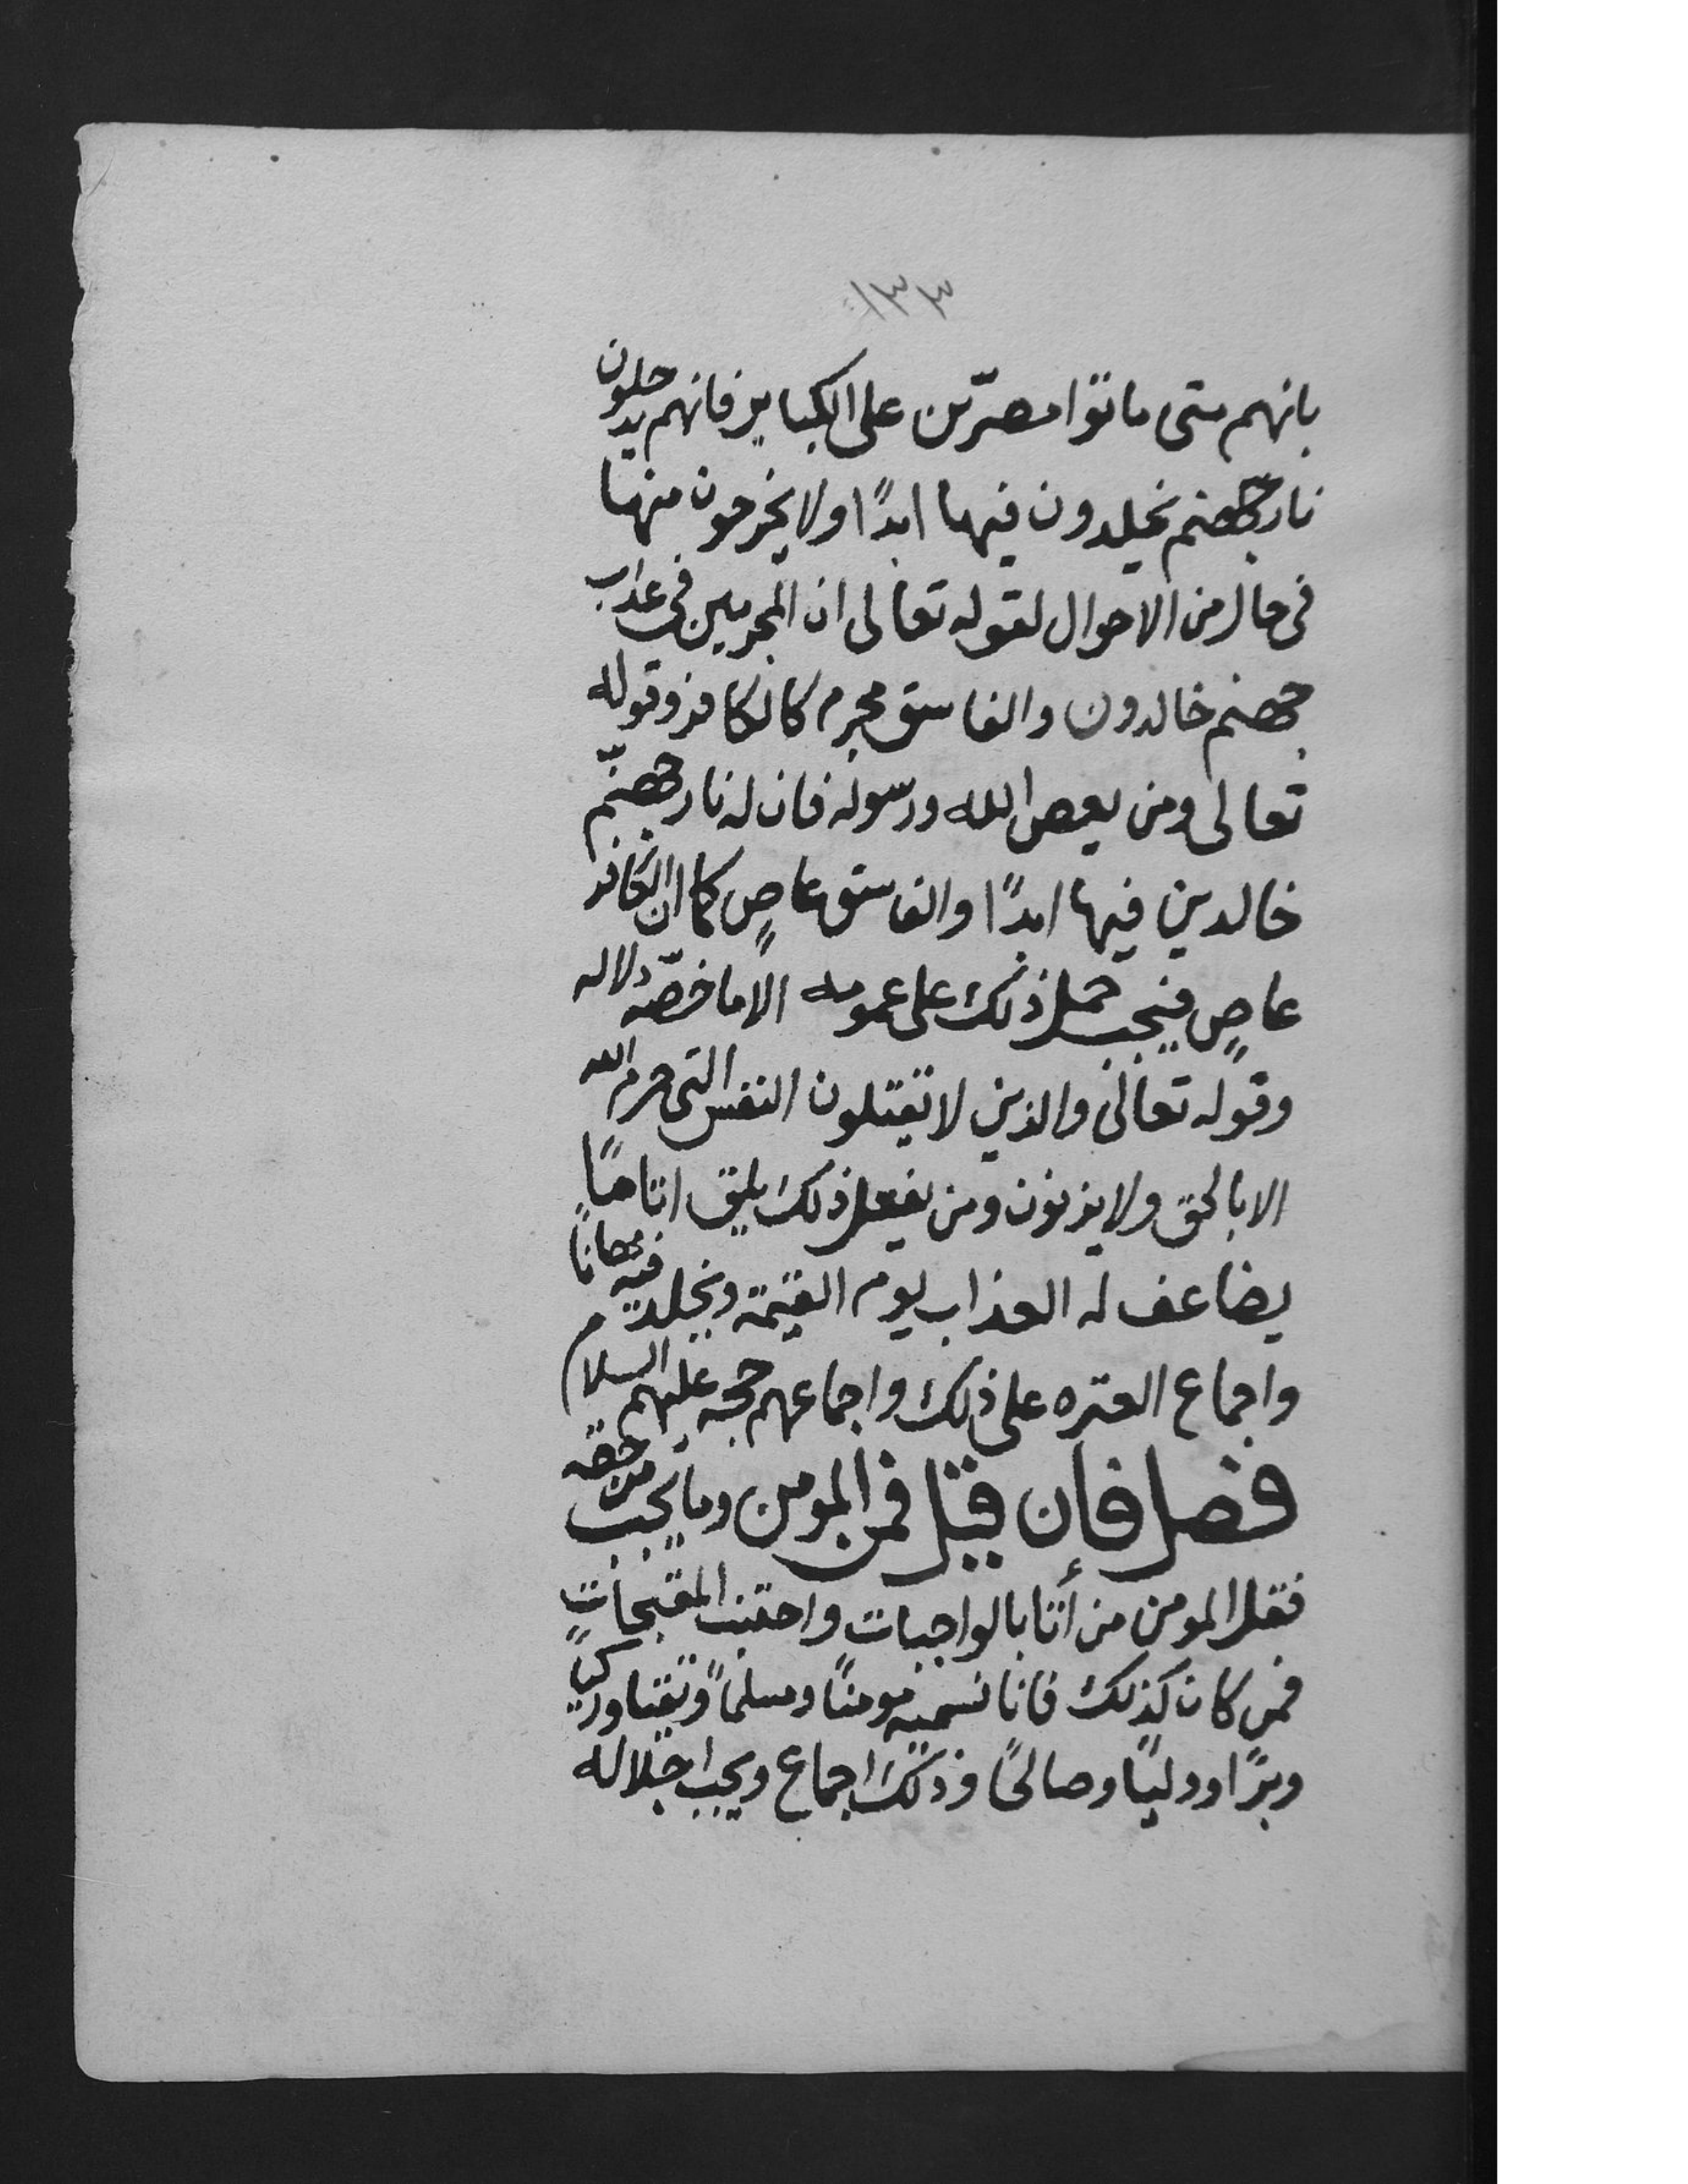 ١٣٣
بانهم متى ماتوا مصرّين على الكباير فانهم يدخلون
نار جهنم يخلدون فيها ابدًا ولا يخرجون منها
فى حال من الاحوال لقوله تعالى ان المجرمين فى عذاب
جهنم خالدون والفاسق مجرم كالكافر وقوله
تعالى ومن يعص الله ورسوله فان له نار جهنّم
خالدين فيها ابدًا والفاسق عاصٍ كما ان الكافر
عاصٍ فيجب حمل ذلك على عمومه الا ما خصّه دلاله
وقوله تعالى والذين لا يقتلون النفس التى حرم الله
الا بالحق ولا يزنون ومن يفعل ذلك يلق اثاما
يضاعف له العذاب يوم القيمة ويخلد فيه مهانًا
واجماع العتره على ذلك واجماعهم حجه عليهم السلام
فصل فان قيل فمن المومن وما يجب من حقه
فقل المومن من أتا بالواجبات واجتنب المقبحات
فمن كان كذلك فانا نسميه مومنًا ومسلمًا وتقيا وزكيًا
وبرًا ووليًا وصالحًا وذلك اجماع ويجب اجلاله